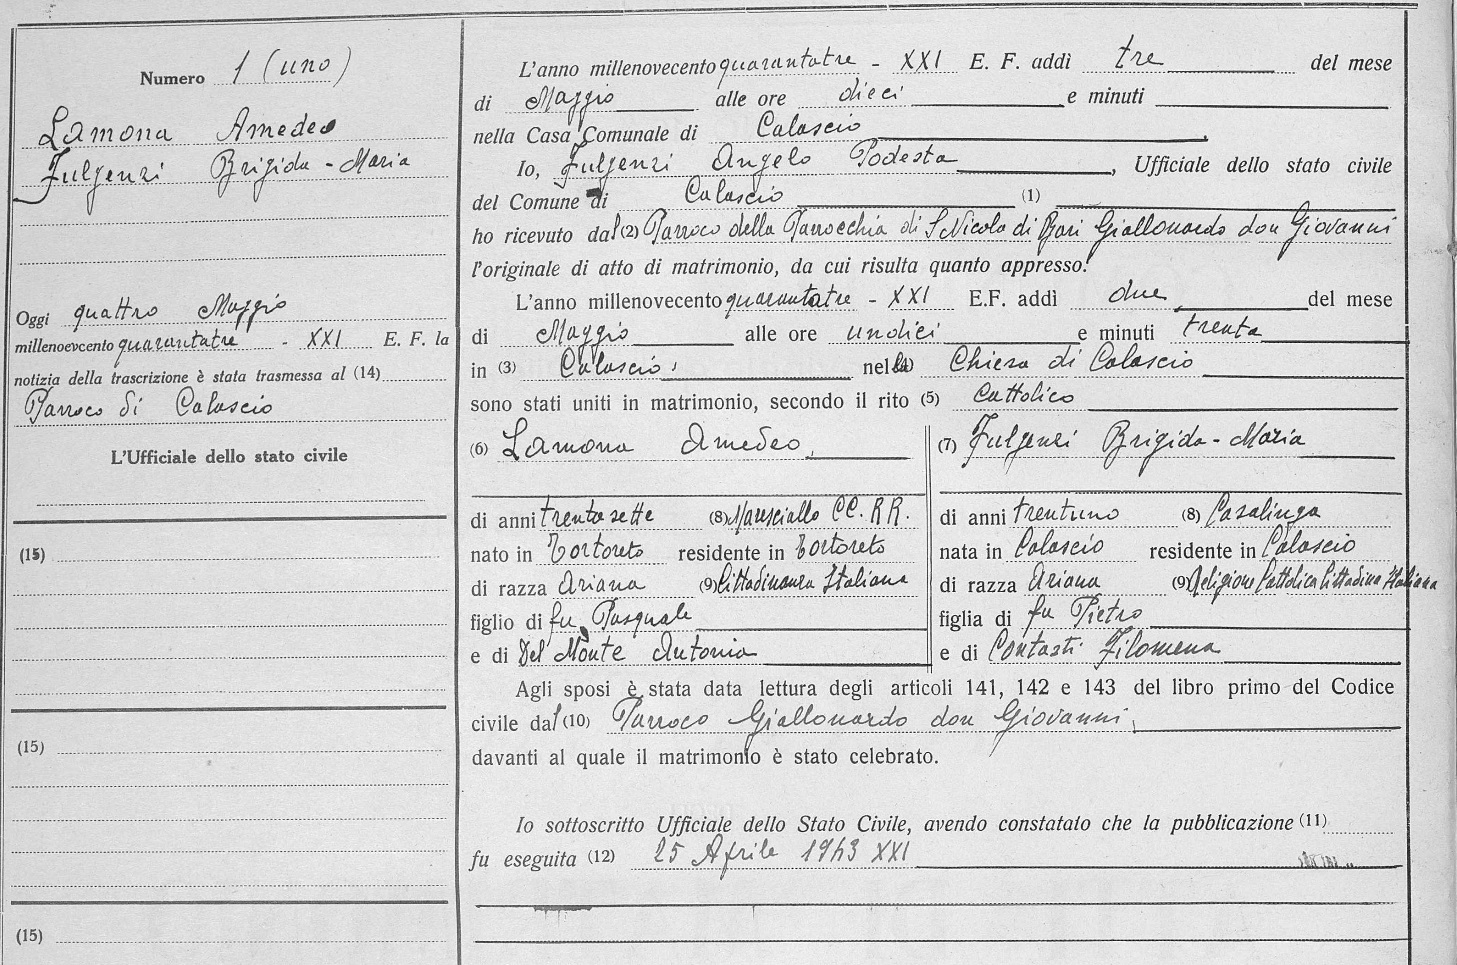 Numero 1 (uno)
Lamona Amedeo
Fulgenzi Brigida - Maria
Oggi quattro Maggio
millenoevcento quarantatre - XXI E. F. la
notizia della trascrizione è stata trasmessa al (14)
Parroco di Calascio
L'Ufficiale dello stato civile
(15)
(15)
(15)
L'anno millenovecento quarantatre - XXI E. F. addì tre del mese
di Maggio alle ore dieci e minuti
nella Casa Comunale di Calascio
Io, Fulgenzi Angelo Podesta, Ufficiale dello stato civile
del Comune di Calascio (1)
ho ricevuto dal (2) Parroco della Parrocchia di S Nicola di Bari Giallonardo don Giovanni
l'originale di atto di matrimonio, da cui risulta quanto appresso:
L'anno millenovecento quarantatre - XXI E.F. addì due del mese
di Maggio alle ore undici e minuti trenta
in (3) Calascio nella (4) Chiesa di Calascio
sono stati uniti in matrimonio, secondo il rito (5) Cattolico
(6) Lamona Amedeo
di anni trentasette (8) Maresciallo CC. RR.
nato in Tortoreto residente in Tortoreto
di razza Ariana (9) Cittadinanza Italiana
figlio di fu Pasquale
e di Del Monte Antonia
(7) Fulgenzi Brigida - Maria
di anni trentuno (8) Casalinga
nata in Calascio residente in Calascio
di razza Ariana (9) Religione Cattolica Cittadina Italiana
figlia di fu Pietro
e di Contasti Filomena
Agli sposi è stata data lettura degli articoli 141, 142 e 143 del libro primo del Codice
civile dal (10) Parroco Giallonardo don Giovanni
davanti al quale il matrimonio è stato celebrato.
Io sottoscritto Ufficiale dello Stato Civile, avendo constatato che la pubblicazione (11)
fu eseguita (12) 25 Aprile 1943 XXI